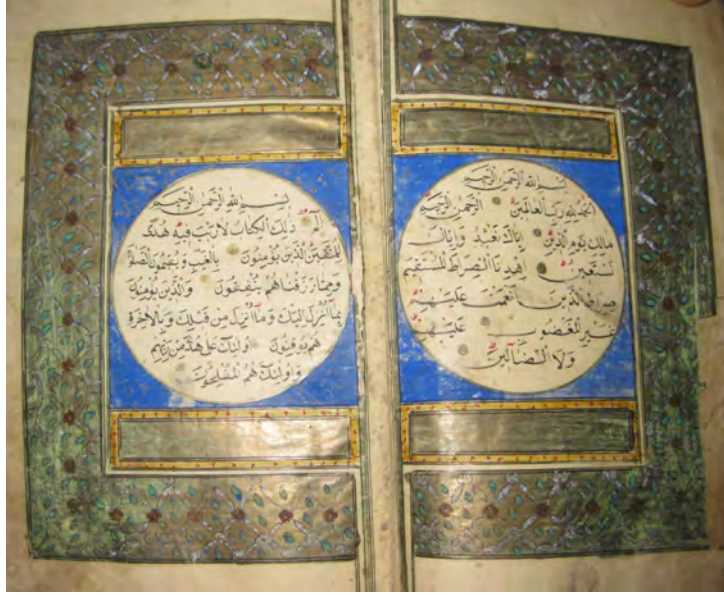 بسم الله الرحمن الرحيم
الحمد لله رب العالمين الرحمن الرحيم
مالك يوم الدين إياك نعبد وإياك
نستعين اهدنا الصراط المستقيم
صراط الذين أنعمت عليهم
غير المغضوب عليهم
ولا الضالين
بسم الله الرحمن الرحيم
الم ذلك الكتاب لا ريب فيه هدى
للمتقين الذين يؤمنون بالغيب ويقيمون الصلوة
ومما رزقناهم ينفقون والذين يؤمنون
بما أنزل إليك وما أنزل من قبلك وبالآخرة
هم يوقنون أولئك على هدى من ربهم
وأولئك هم المفلحون